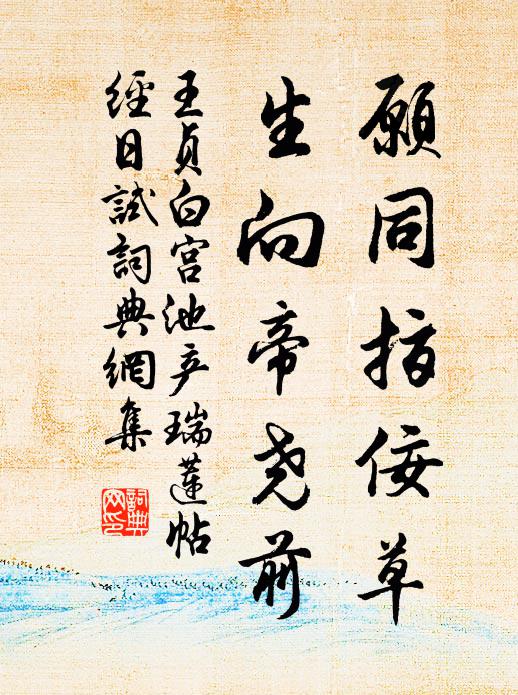 願同指佞草
生向帝尧前
王贞白宫池产瑞莲帖
經日試詞典網集
詞典
网印